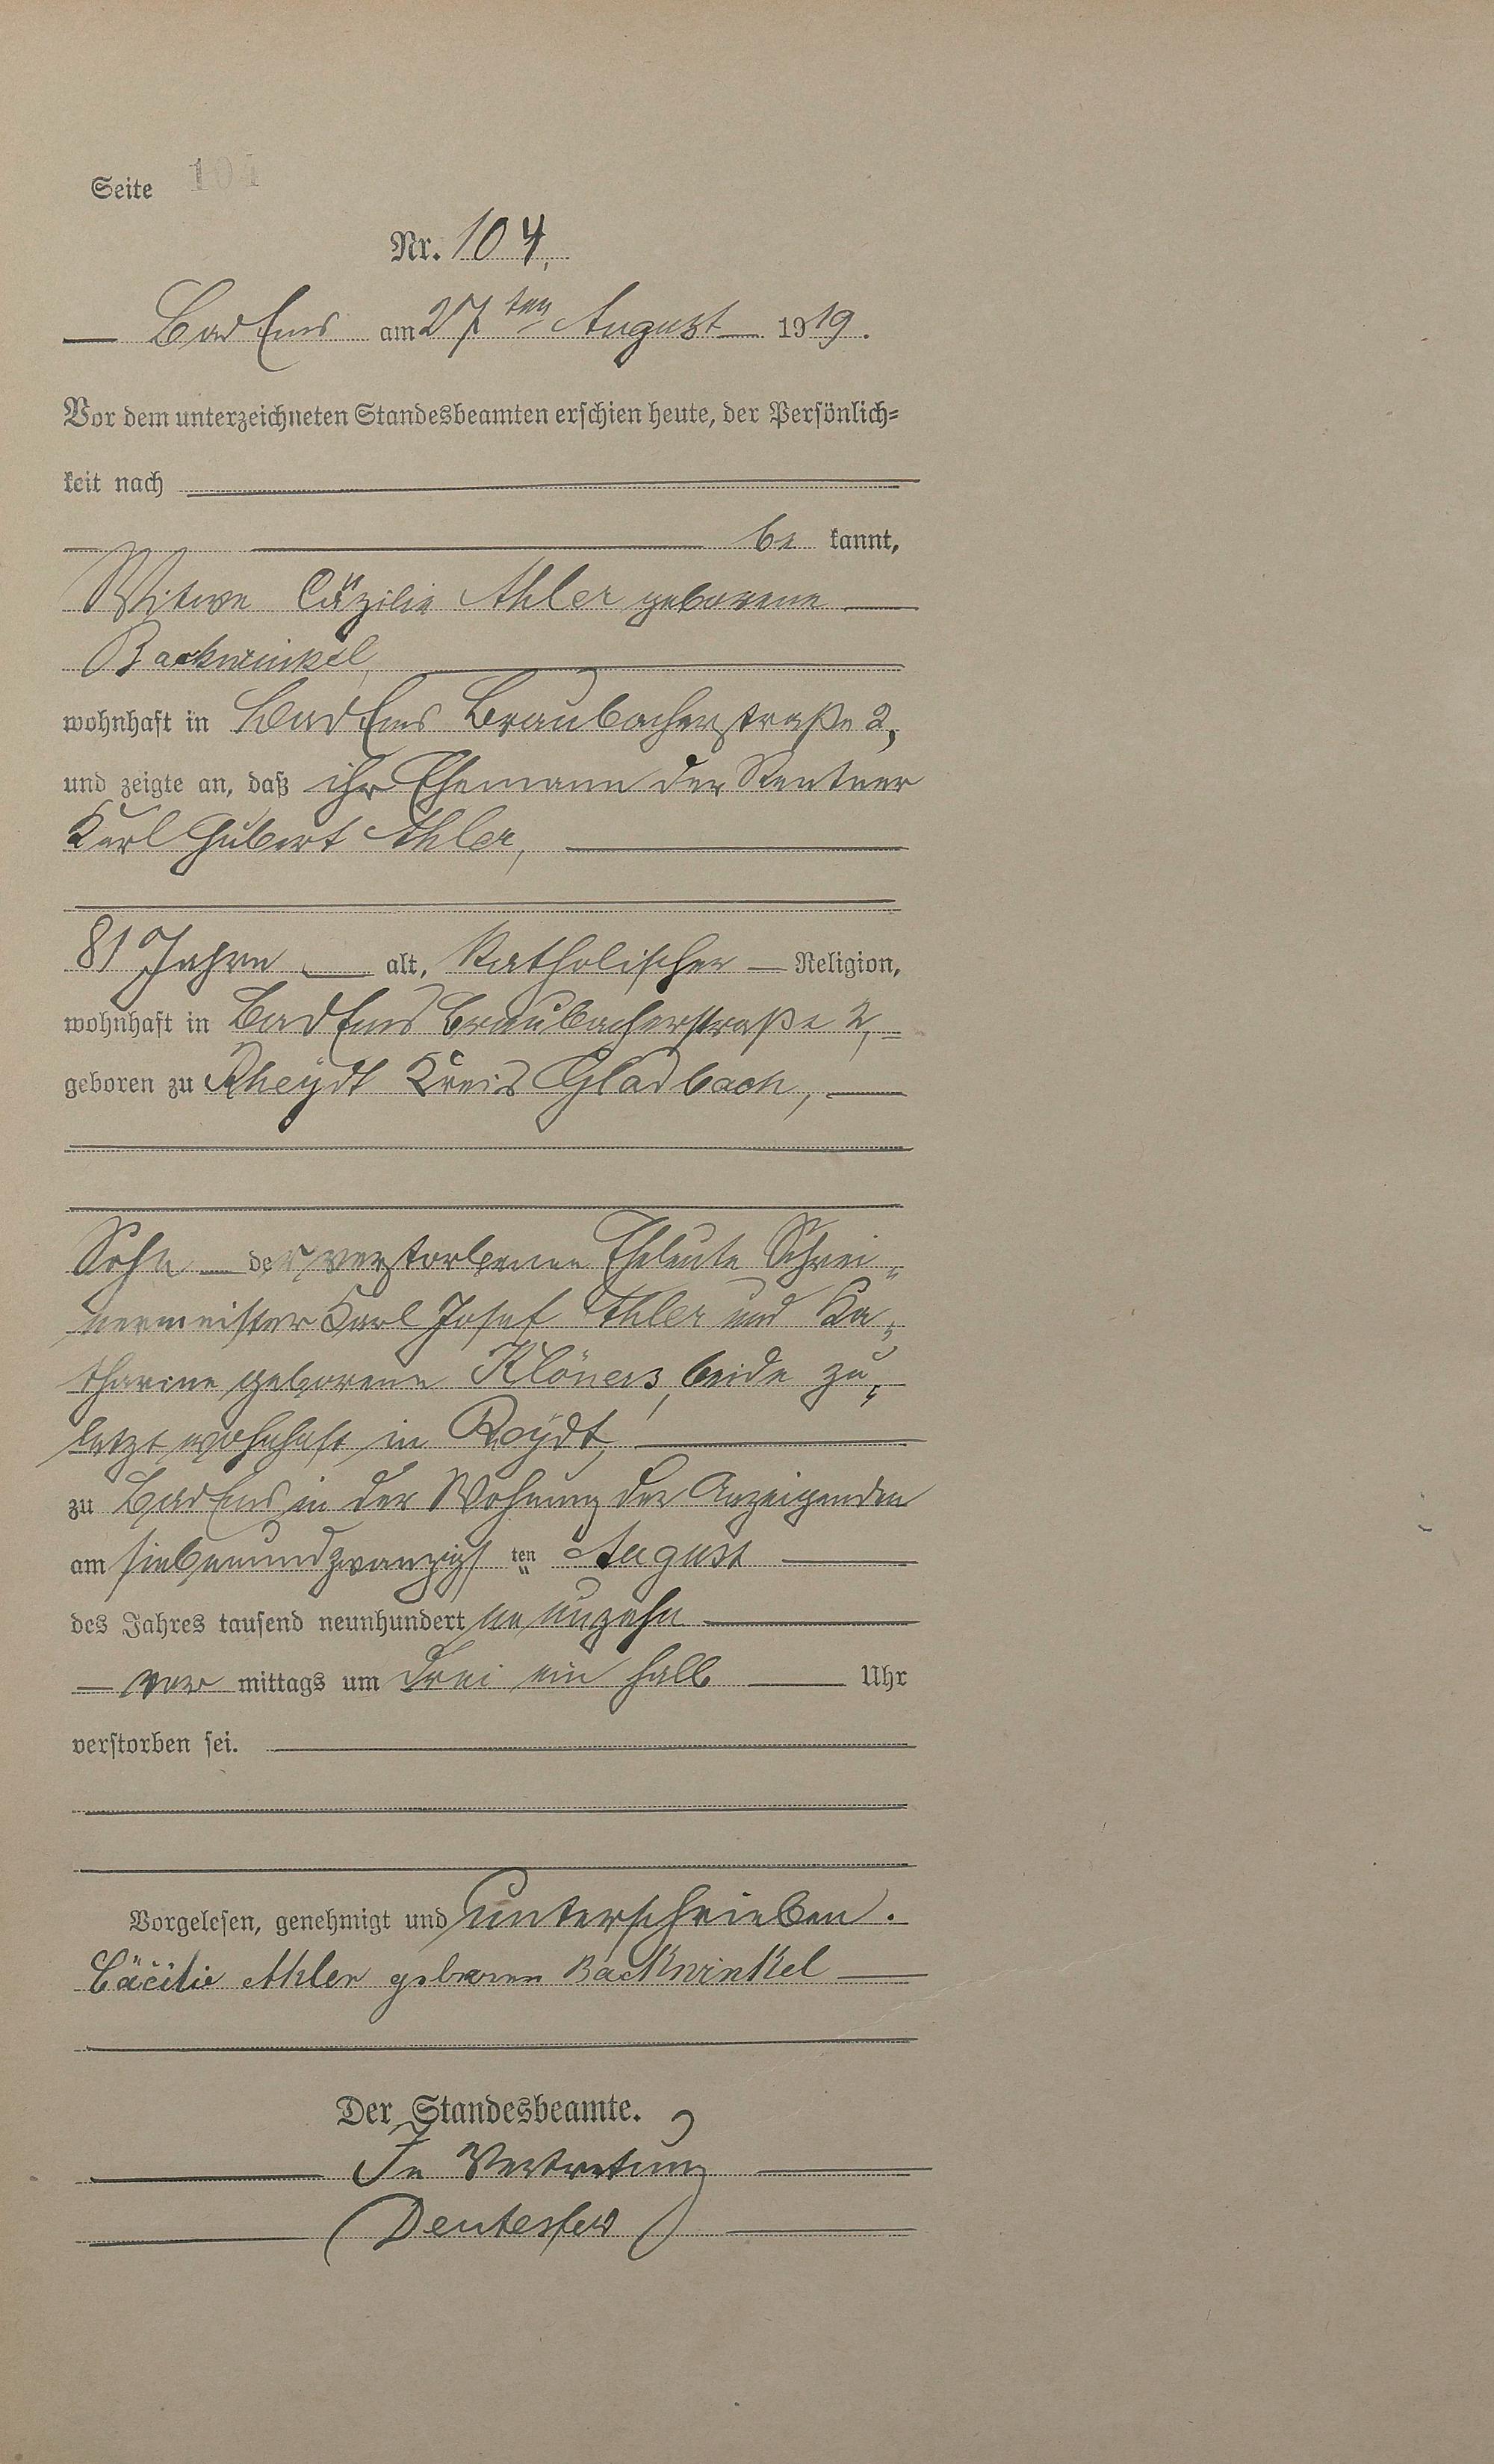 Seite 104
Nr. 104,
Bad Ems am 27ten August 1919.
Vor dem unterzeichneten Standesbeamten erschien heute, der Persönlich=
keit nach
be kannt,
Witwe Cäzilie Ahler geborene
Backwinkel,
wohnhaft in Bad Ems Braubacherstraße 2,
und zeigte an, daß ihr Ehemann der Rentner
Karl Hubert Ahler,
81 Jahre alt, katholischer Religion,
wohnhaft in Bad Ems Braubacherstraße 2,
geboren zu Rheydt Kreis Gladbach,
Sohn der verstorbenen Eheleute Schrei=
nermeister Karl Josef Ahler und Ka=
tharine geborene Klöners, beide zu=
letzt wohnhaft in Reydt,
zu Bad Ems in der Wohnung der Anzeigenden
am siebenundzwanzigsten August
des Jahres tausend neunhundert neunzehn
vor mittags um drei ein halb Uhr
verstorben sei.
Vorgelesen, genehmigt und unterschrieben.
Cäcilie Ahler geborene Backwinkel
Der Standesbeamte.
In Vertretung